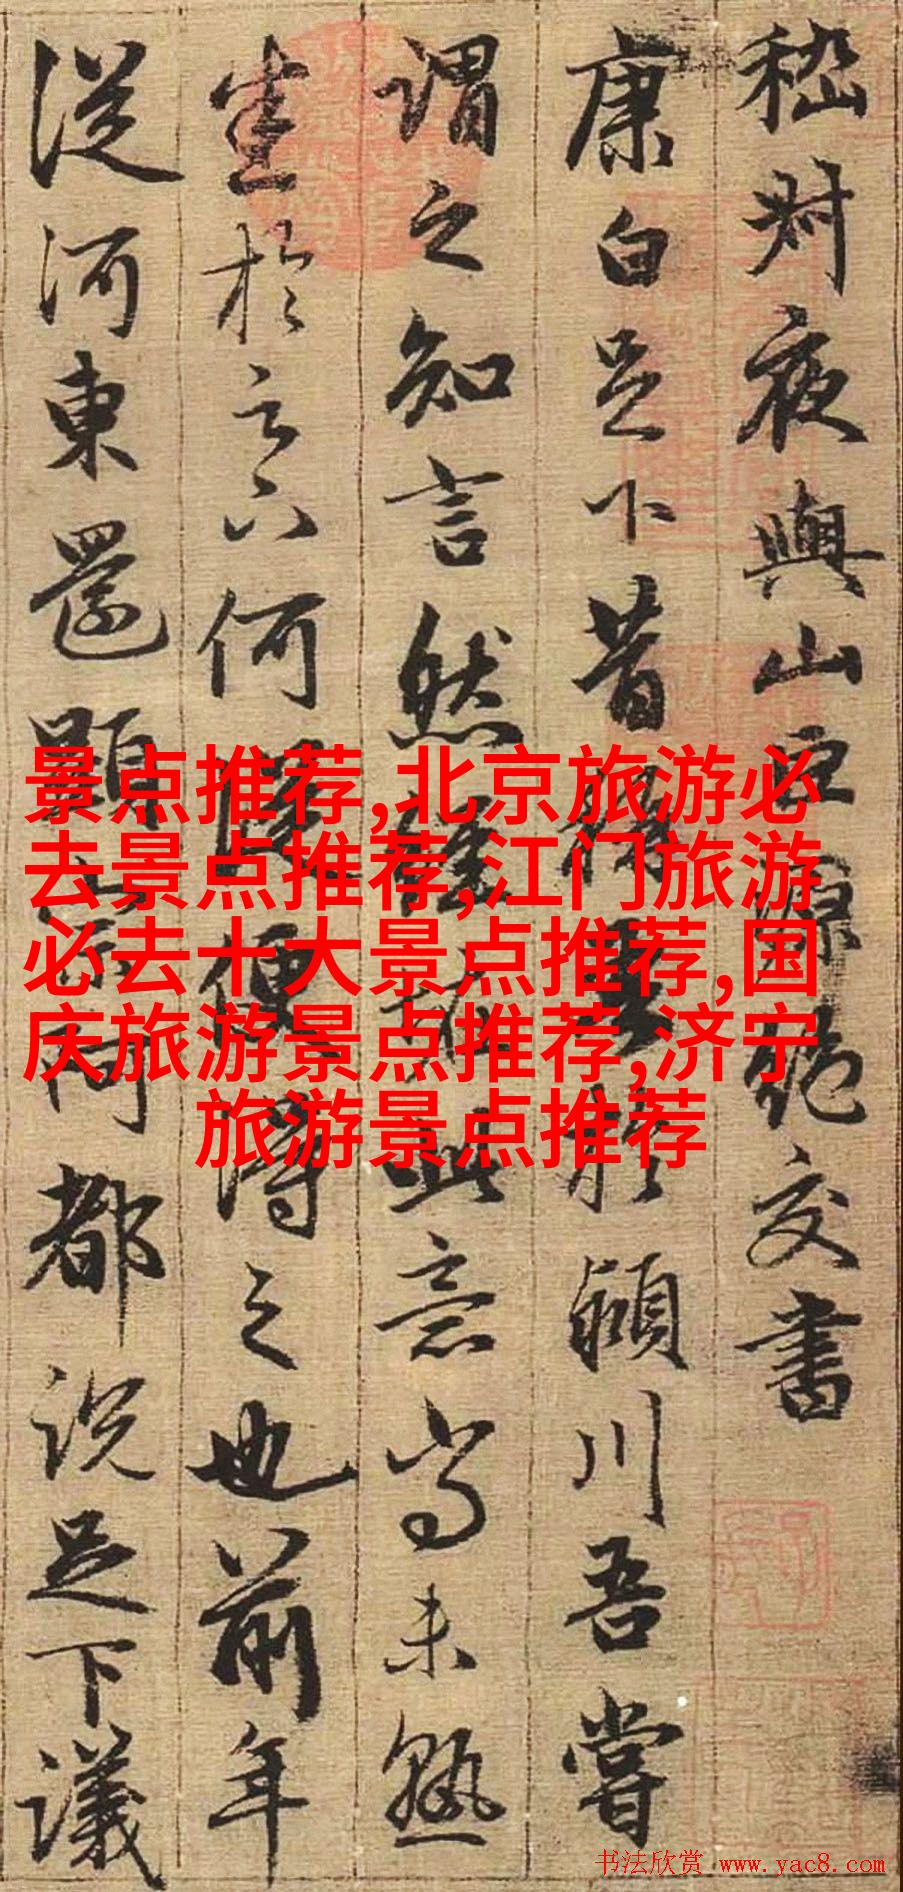 嵇叔夜與山巨源絶交書
康白足下昔稱吾於潁川吾嘗
謂之知言然經怪此意尚未熟
悉於足下何從便得之也前年
從河東還顯宗阿都說足下議
景点推荐,北京旅游必
去景点推荐,江门旅游
必去十大景点推荐,国
庆旅游景点推荐,济宁
旅游景点推荐
书法欣赏 www.yac8.com